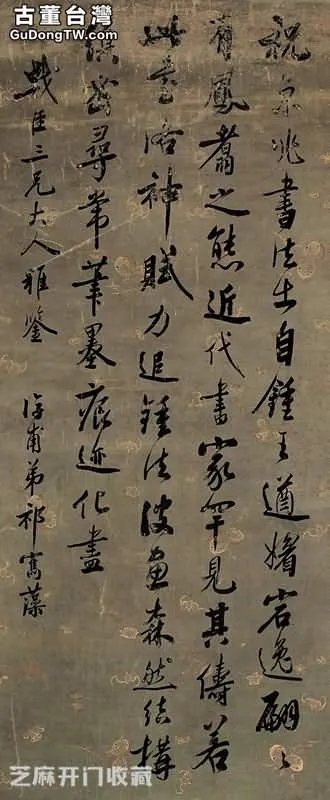 古董台灣
GuDongTW.com
祝京兆書法出自鍾王遒媚宕逸翩〻
鳳翥之態近代書家罕見其儔若
此卷洛神賦力追鍾法波畫森然結構
縝密尋常筆墨痕迹化盡
三兄大人雅鑒
淳甫弟祁寯藻
芝麻开门收藏